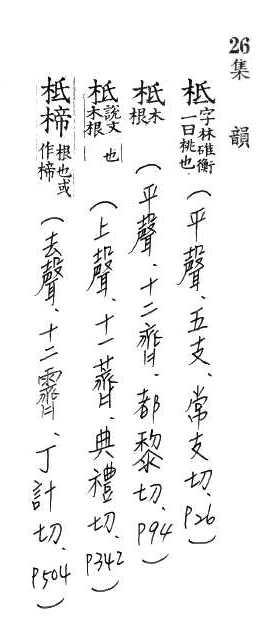 26 集韻
柢 字林碓衡一曰桃也（平聲、五支、常支切、P26）
柢 木根（平聲、十二齊、都黎切、P94）
柢 說文木根也（上聲、十一薺、典禮切、P342）
柢 㮹 根也或作㮹（去聲、十二霽、丁計切、P504）